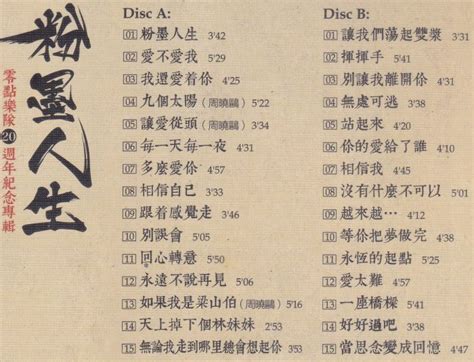 粉墨人生
零點樂隊20週年紀念專輯
Disc A:
01 粉墨人生 3'42
02 愛不愛我 5'29
03 我還愛着你 4'25
04 九個太陽（周曉鷗）5'22
05 讓愛從頭（周曉鷗）5'34
06 每一天每一夜 4'31
07 多麼愛你 4'39
08 相信自己 3'33
09 跟着感覺走 3'46
10 別誤會 5'05
11 回心轉意 5'50
12 永遠不説再見 5'06
13 如果我是梁山伯（周曉鷗）5'16
14 天上掉下個林妹妹 2'53
15 無論我走到哪里總會想起你 3'53
Disc B:
01 讓我們蕩起雙槳 3'31
02 揮揮手 5'41
03 別讓我離開你 4'31
04 無處可逃 3'38
05 站起來 4'07
06 你的愛給了誰 4'10
07 相信我 4'45
08 沒有什麼不可以 5'01
09 越來越… 4'17
10 等你把夢做完 4'38
11 永恆的起點 5'25
12 愛太難 4'57
13 一座橋樑 5'41
14 好好過吧 3'38
15 當思念變成回憶 4'47